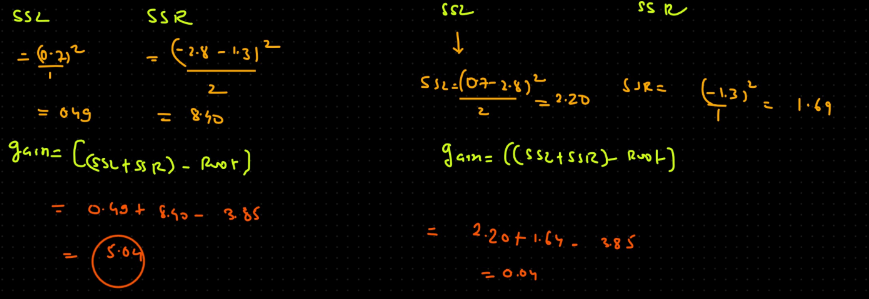 SSL SSR
= (0.7)² / 1 = (-2.8 - 1.3)² / 2
= 0.49 = 8.40
gain = [(SSL + SSR) - Root]
= 0.49 + 8.40 - 3.85
= 5.04
SSL SSR
↓
SSL = (0.7 - 2.8)² / 2 = 2.20 SSR = (-1.3)² / 1 = 1.69
gain = ((SSL + SSR) - Root]
= 2.20 + 1.64 - 3.85
= 0.04